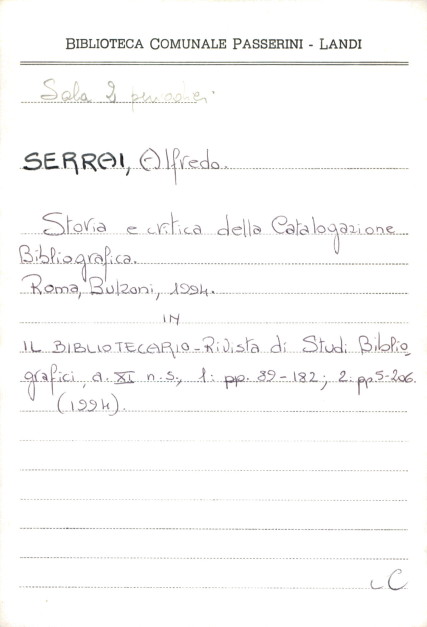 BIBLIOTECA COMUNALE PASSERINI - LANDI
Sala 2 periodici
SERRAI, Alfredo.
Storia e critica della Catalogazione
Bibliografica.
Roma, Bulzoni, 1994.
IN
IL BIBLIOTECARIO - Rivista di Studi Biblio
grafici, a. XI n.s., 1: pp. 89-182; 2: pp. 5-206.
(1994).